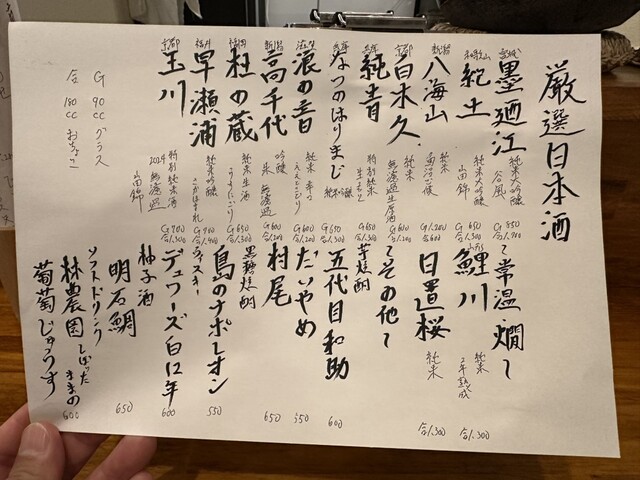 厳選日本酒
宮城 墨廼江 純米大吟醸 谷風 G 850 合1,700
和歌山 紀土 純米大吟醸 山田錦 G 650 合1,300
新潟 八海山 純米 G 1,200 合600
京都 白木久 純米 無濾過生原酒 G 600 合1,200
兵庫 純青 特別純米 生もと G 650 合1,300
兵庫 なつのはりまじ 純米吟醸 G 650 合1,300
滋賀 浪の音 純米 辛口 ええとこどり G 600 合1,200
新潟 高千代 純米 吟醸 無濾過 G 600 合1,200
福岡 杜の蔵 純米生酒 うすにごり G 650 合1,300
福井 早瀬浦 純米吟醸 さかほまれ G 700 合1,400
京都 玉川 特別純米酒 2024 無濾過 山田錦 G 700 合1,300
G 90cc グラス
合 180cc おちょこ
〜常温、燗〜
山形 鯉川 純米 2年熟成 合1,300
日置桜 純米 合1,300
〜その他〜
芋焼酎
五代目和助 600
だいやめ 550
村尾 650
黒糖焼酎
島のナポレオン 550
ウイスキー
デュワーズ白12年 600
柚子酒
明石鯛 650
ソフトドリンク
林農園 しぼったままの
葡萄じゅうす 600